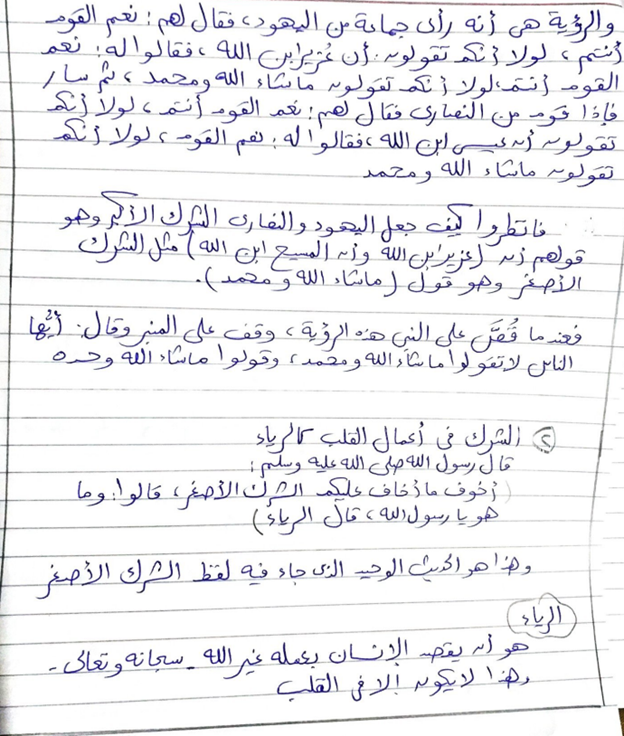 والرؤية هى أنه رأى جماعة من اليهود، فقال لهم: نعم القوم
أنتم، لولا أنكم تقولون: أن عُزير ابن الله، فقالوا له: نعم
القوم أنتم، لولا أنكم تقولون ماشاء الله ومحمد، ثم سار
فإذا قوم من النصارى فقال لهم: نعم القوم أنتم، لولا أنكم
تقولون أن عيسى ابن الله، فقالوا له: نعم القوم، لولا أنكم
تقولون ماشاء الله ومحمد
فانظروا كيف جعل اليهود والنصارى الشرك الأكبر وهو
قولهم أن (عزير ابن الله وأن المسيح ابن الله) مثل الشرك
الأصغر وهو قول (ماشاء الله ومحمد).
فعندما قُصَّ على النبى هذه الرؤية، وقف على المنبر وقال: أيُّها
الناس لا تقولوا ماشاء الله ومحمد، وقولوا ماشاء الله وحده
٢ الشرك فى أعمال القلب كالرياء
قال رسول الله صلى الله عليه وسلم:
(أخوف ما أخاف عليكم الشرك الأصغر، قالوا: وما
هو يا رسول الله، قال الرياء)
وهذا هو الحديث الوحيد الذى جاء فيه لفظ الشرك الأصغر
الرياء
هو أن يقصد الإنسان بعمله غير الله - سبحانه وتعالى -
وهذا لا يكون إلا فى القلب